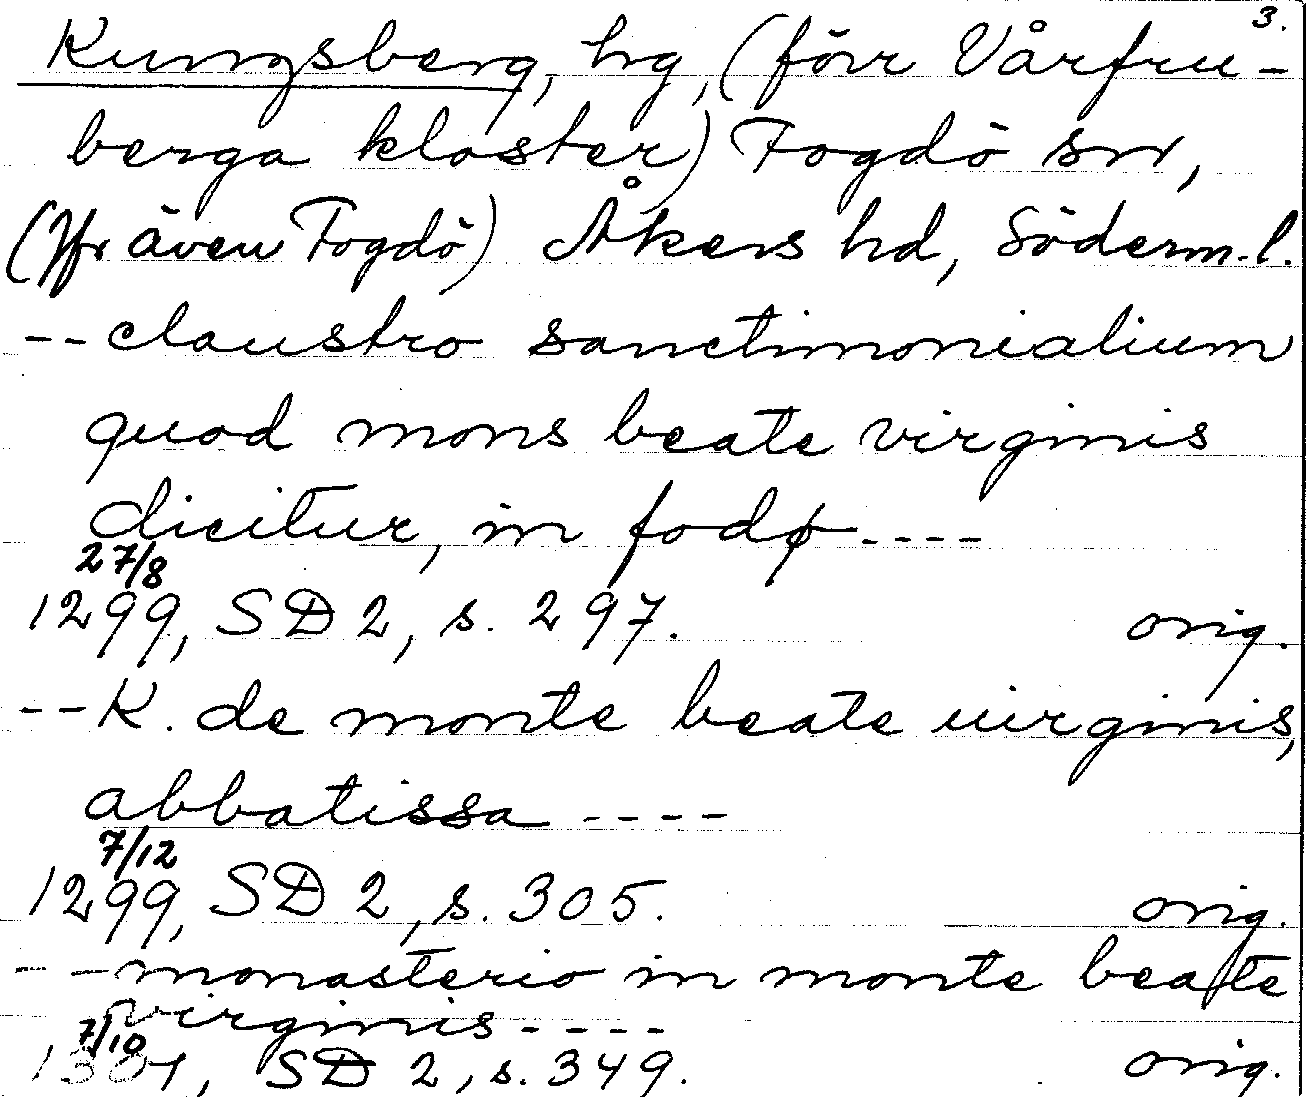 3.
Kungsberg, hg, (förr Vårfru-
berga kloster) Fogdö sn,
(Jfr även Fogdö) Åkers hd, Söderm. l.
-- claustro sanctimonialium
quod mons beate virginis
dicitur, in fodø ----
27/8
1299, SD 2, s. 297. orig.
-- K. de monte beate uirginis,
abbatissa ----
7/12
1299, SD 2, s. 305. orig.
-- monasterio in monte beate
virginis ----
7/10
1301, SD 2, s. 349. orig.